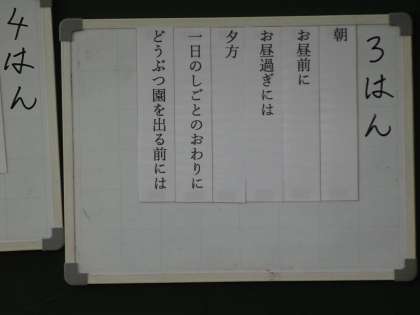 3はん
朝
お昼前に
お昼過ぎには
夕方
一日のしごとのおわりに
どうぶつ園を出る前には
4はん